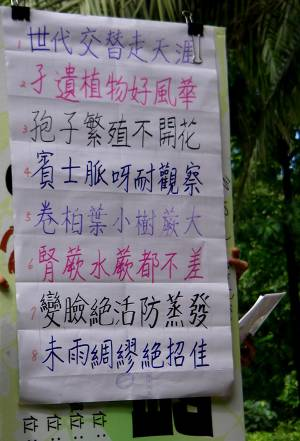 1 世代交替走天涯
2 孑遺植物好風華
3 孢子繁殖不開花
4 賓士脈呀耐觀察
5 卷柏葉小樹蕨大
6 腎蕨水蕨都不差
7 變臉絕活防蒸發
8 未雨綢繆絕招佳